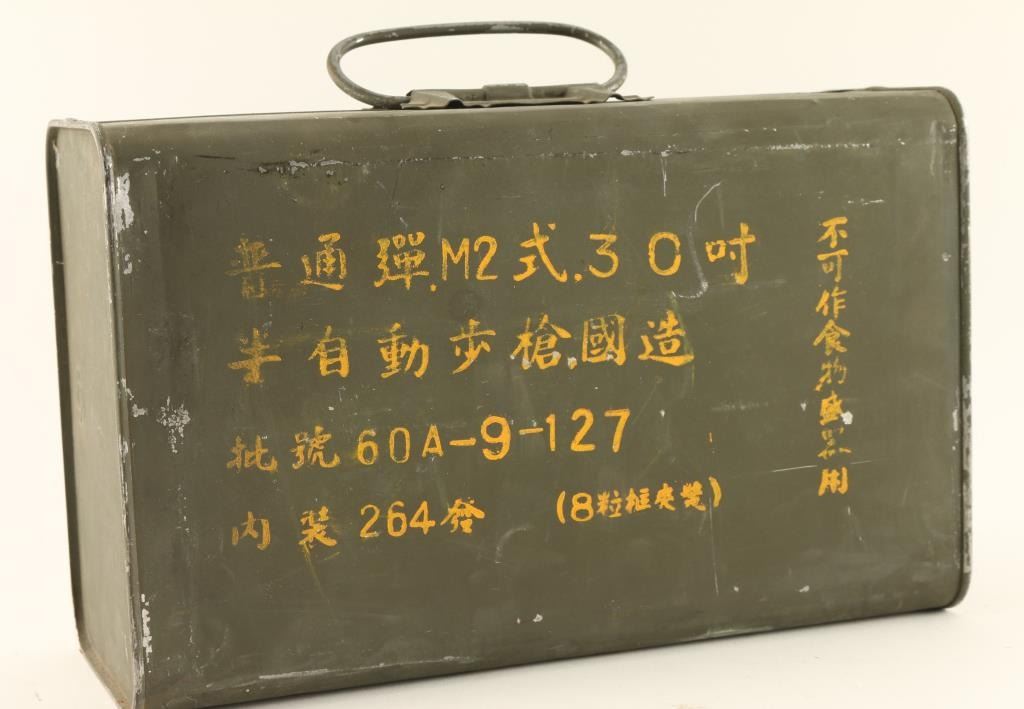 普通彈.M2式.30吋
半自動步槍.國造
批號60A-9-127
內裝264發 (8粒框夾裝)
不可作食物盛器用